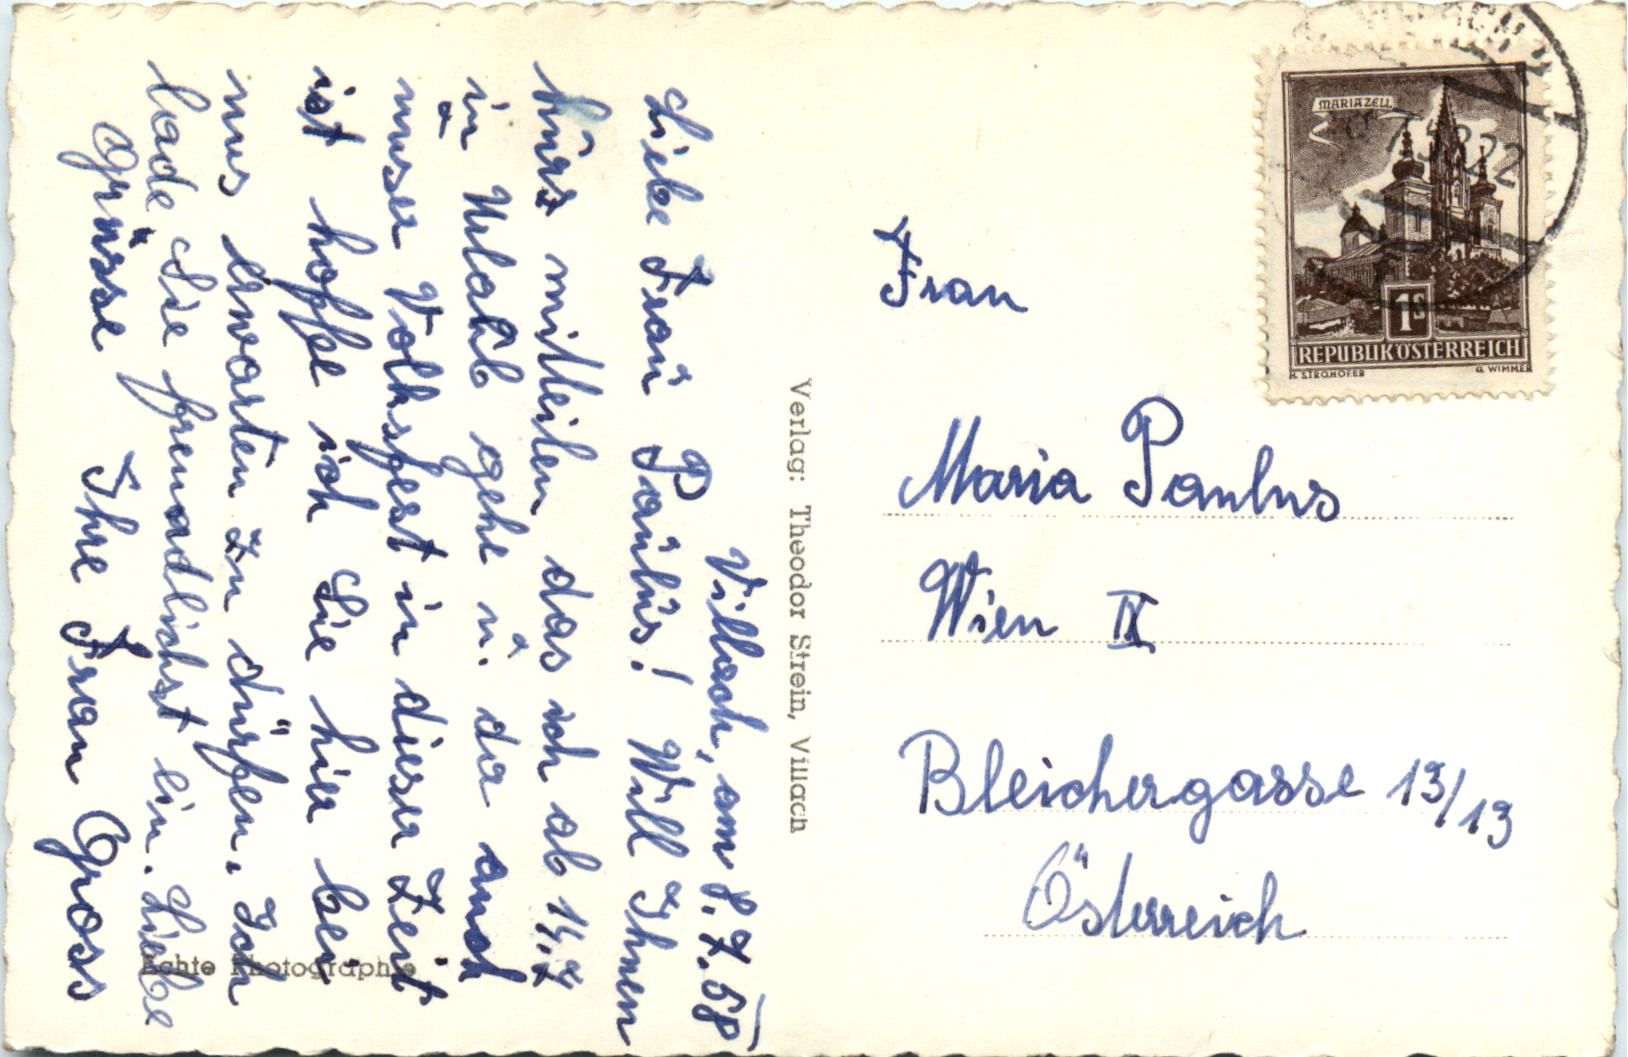 Villach, am 8.7.58
Liebe Frau Paulus! Will Ihnen
kurz mitteilen das ich ab 14.7
in Urlaub gehe u. da auch
unser Volksfest in dieser Zeit
ist hoffe ich Sie hier bei
uns erwarten zu dürfen. Ich
lade Sie freundlichst ein. Liebe
Grüsse Ihre Frau Gross
Echte Photographie
Verlag: Theodor Strein, Villach
MARIAZELL
1S
REPUBLIK ÖSTERREICH
H. STROHOFER G. WIMMER
Frau
Maria Paulus
Wien IX
Bleichergasse 13/13
Österreich